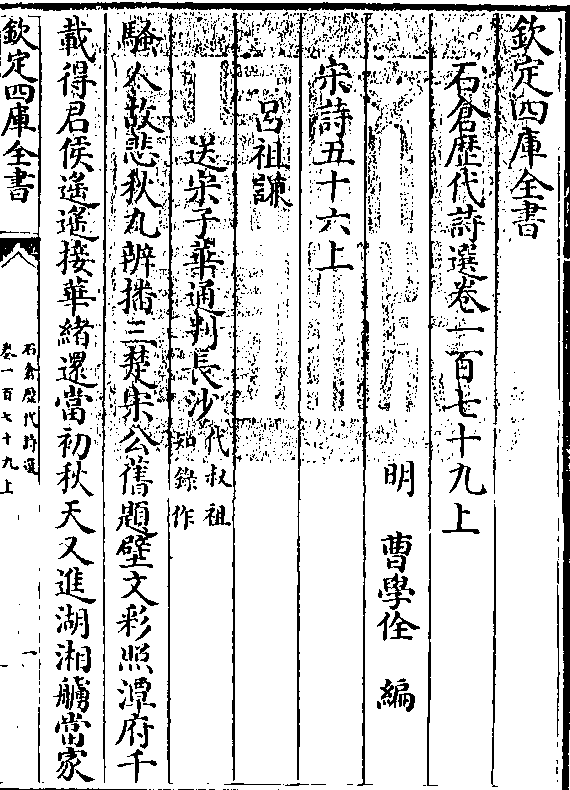 欽定四庫全書
石倉歴代詩選卷一百七十九上
明 曹學佺 編
宋詩五十六上
呂祖謙
送宋子華通判長沙代叔祖知錄作
騷人故悲秋九辨播三楚宋公舊題壁文彩照潭府千
載得君侯遙遙接華緒還當初秋天又進湖湘艣當家
欽定四庫全書
石倉歴代詩選
卷一百七十九上
一